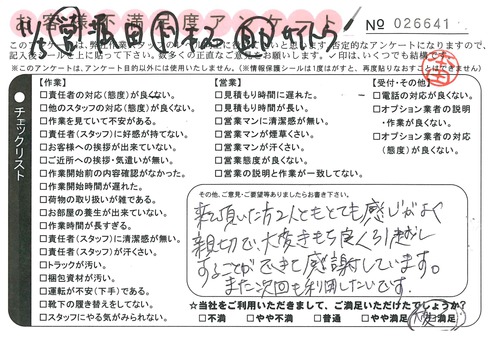 お客様不満足度アンケート
No 026641
このアンケートは、弊社作業スタッフの
と思います。否定的なアンケートになりますので、
記入後
シールを上に貼って下さい。数多くの正直なご意見をお願いします。✓印は、いくつでも結構です
※このアンケートは、アンケート目的以外には使用いたしません。(※情報保護シールは1度はがすと、再度貼りなおすことはできません)
チェックリスト
【作業】
□責任者の対応(態度)が良くない。
□他のスタッフの対応(態度)が良くない。
□作業を見ていて不安がある。
□責任者(スタッフ)に好感が持てない。
□お客様への挨拶が出来ていない。
□ご近所への挨拶・気遣いが無い。
□作業開始前の内容確認がなかった。
□作業開始時間が遅れた。
□荷物の取り扱いが雑である。
□お部屋の養生が出来ていない。
□作業時間が長すぎる。
□責任者(スタッフ)に清潔感が無い。
□責任者(スタッフ)が汗くさい。
□トラックが汚い。
□梱包資材が汚い。
□運転が不安(下手)である。
□靴下の履き替えをしてない。
□スタッフにやる気がみられない。
【営業】
□見積もり時間に遅れた。
□見積もり時間が長い。
□営業マンに清潔感が無い。
□営業マンが煙草くさい。
□営業マンが汗くさい。
□営業態度が良くない。
□営業の説明と作業が一致してない。
【受付・その他】
□電話の対応が良くない。
□オプション業者の説明
・作業が良くない。
□オプション業者の対応
(態度)が良くない。
その他、ご意見・ご要望等ありましたらお書き下さい。
来て頂いた方2人ともとても感じがよく
親切で、大変きもち良く引越し
することができて感謝しています。
また次回も利用したいです。
☆当社をご利用いただきまして、ご満足いただけたでしょうか?
□不満 □やや不満 □普通 □やや満足 大変満足